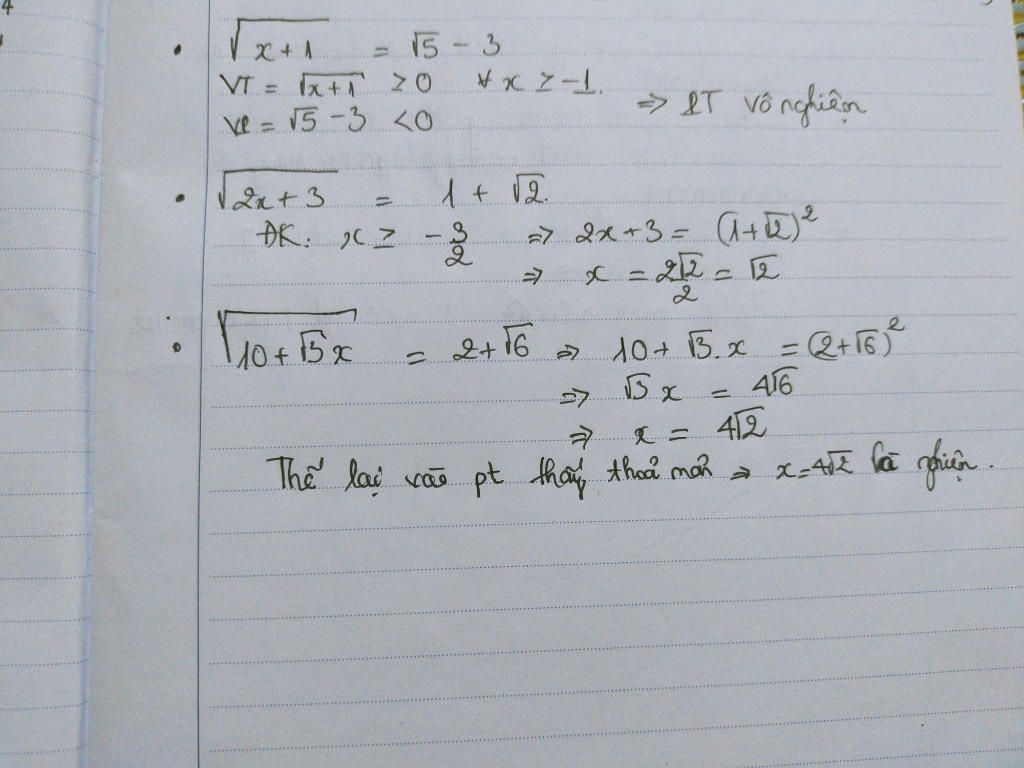 4
• √(x+1) = √5 - 3
VT = √(x+1) ≥ 0 ∀ x ≥ -1.
VP = √5 - 3 < 0 => PT vô nghiệm
• √(2x+3) = 1 + √2.
ĐK: x ≥ -3/2 => 2x+3 = (1+√2)²
=> x = 2√2/2 = √2
• √(10+√3x) = 2+√6 => 10+ √3.x = (2+√6)²
=> √3 x = 4√6
=> x = 4√2
Thế lại vào pt thấy thoả mãn => x=4√2 là nghiệm.